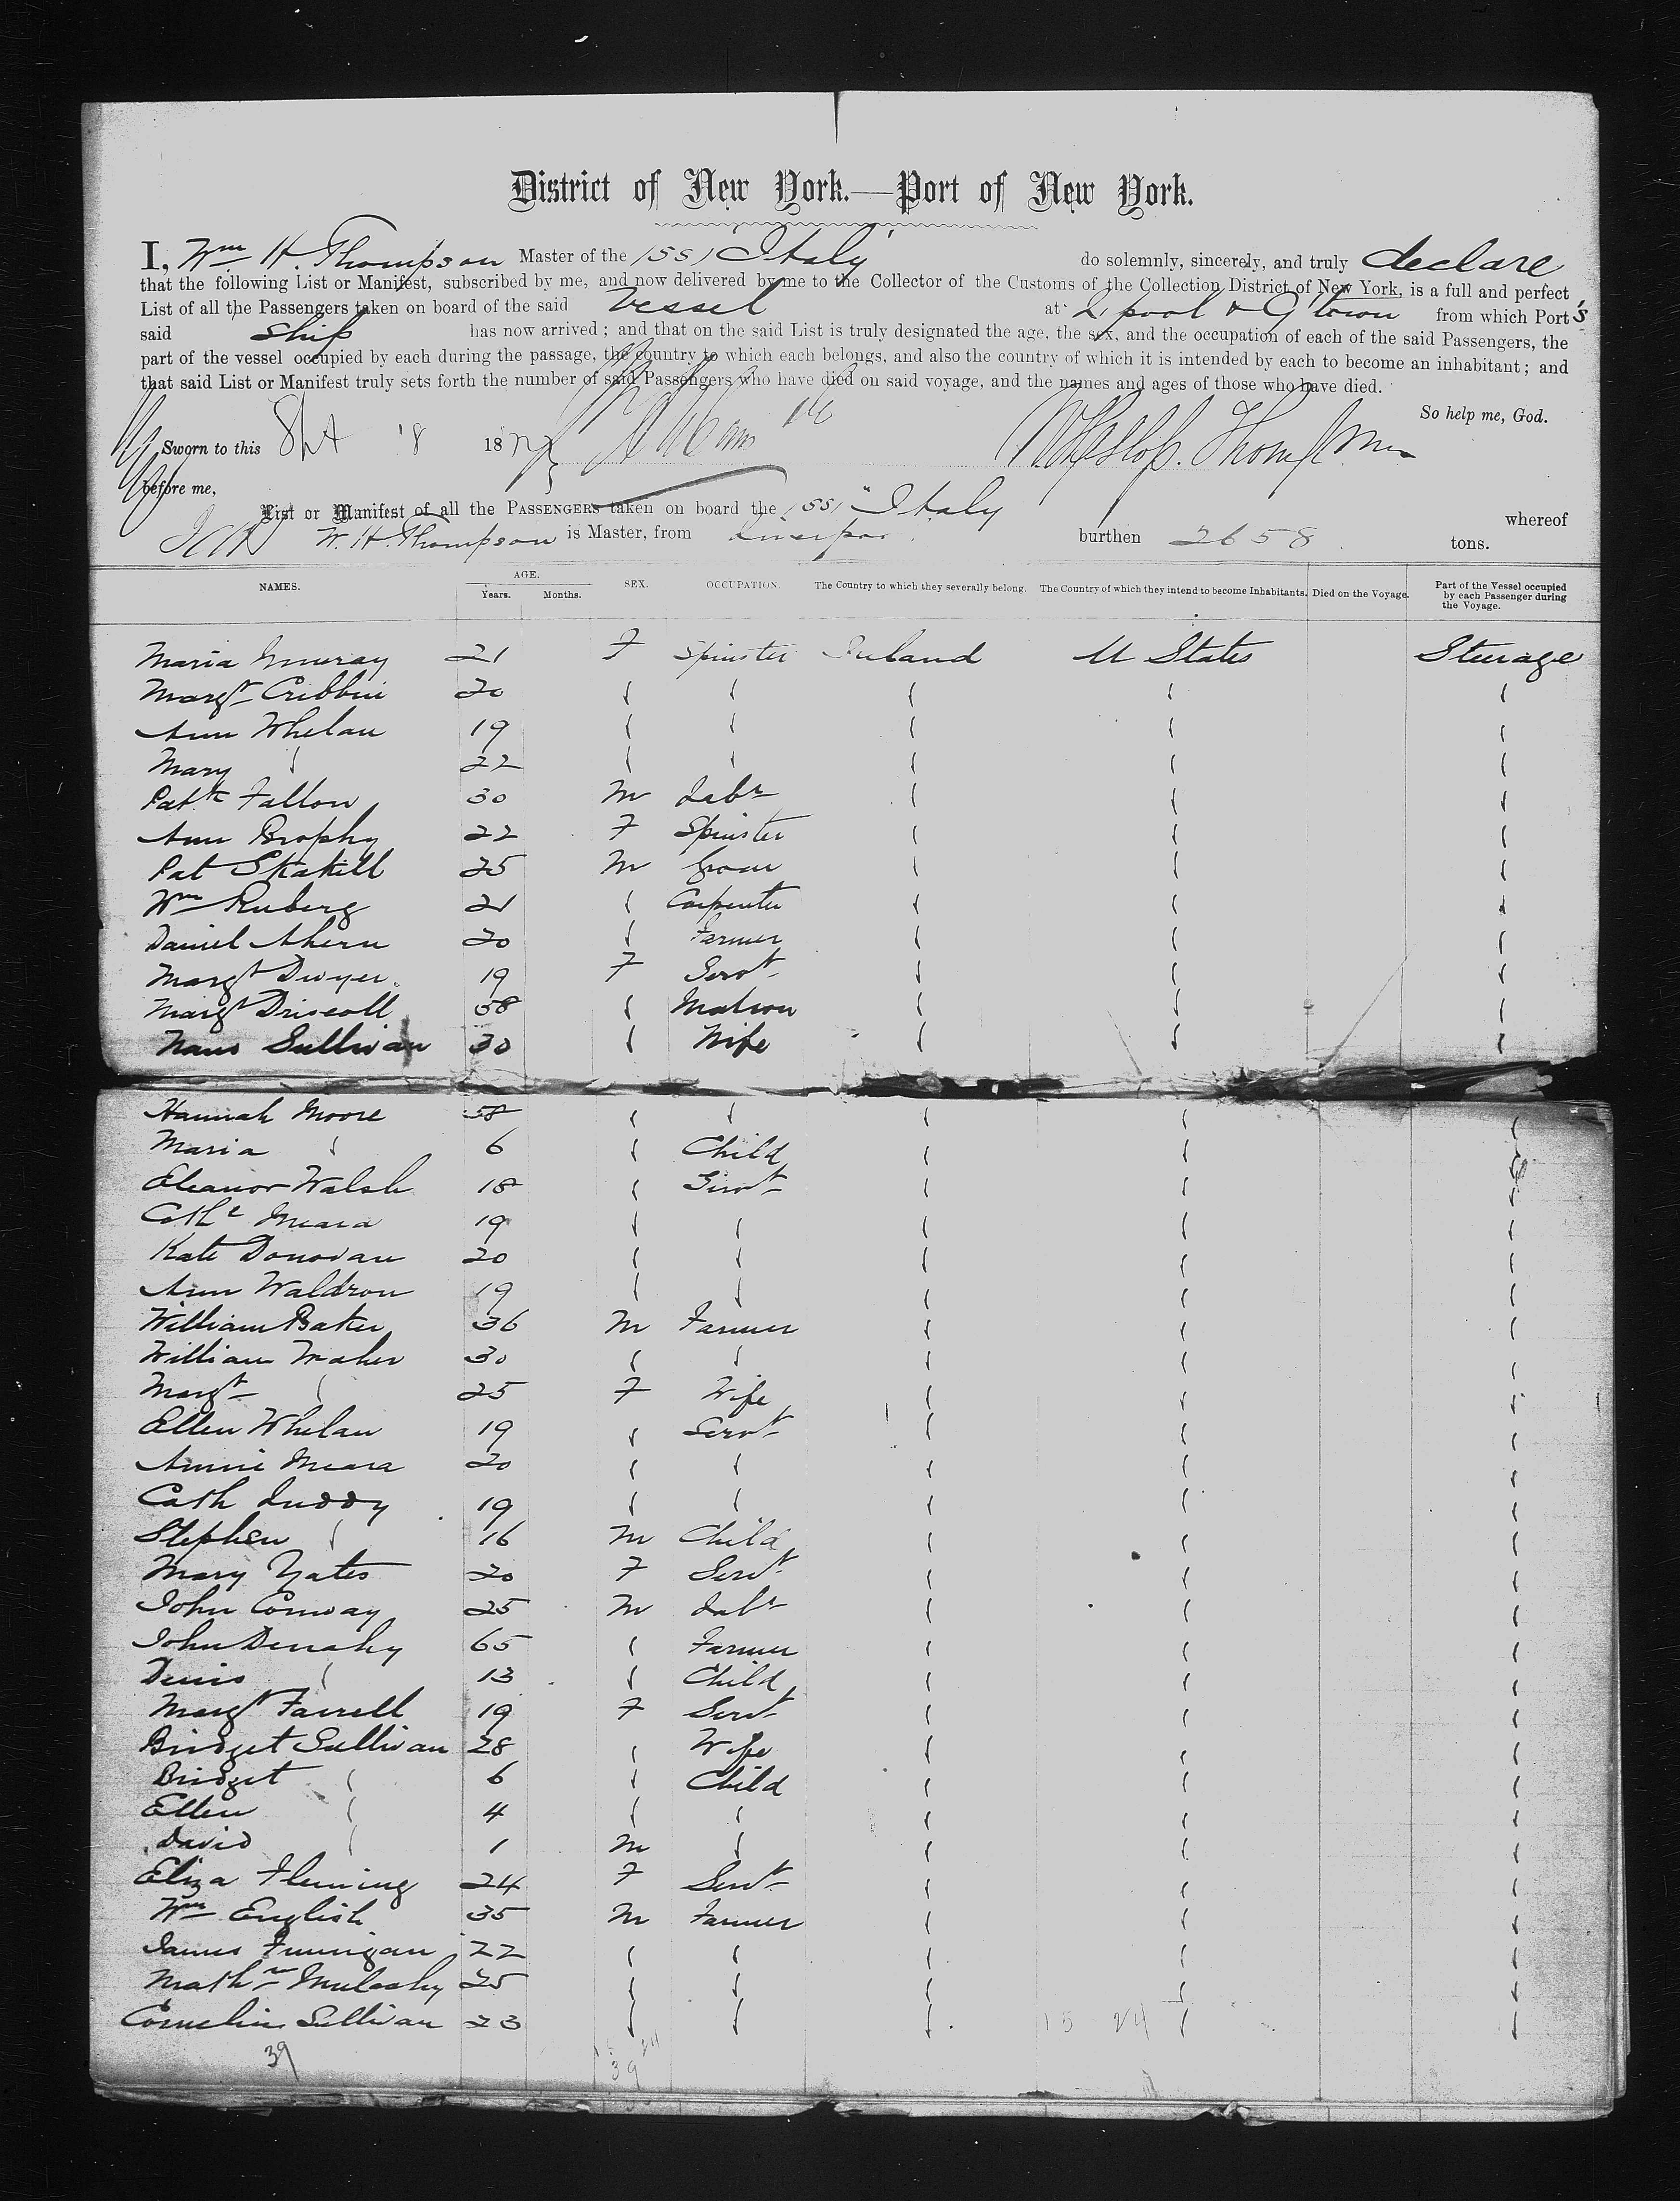 District of New York.—Port of New York.
I, Wm H. Thompson Master of the (SS) Italy do solemnly, sincerely, and truly declare
that the following List or Manifest, subscribed by me, and now delivered by me to the Collector of the Customs of the Collection District of New York, is a full and perfect
List of all the Passengers taken on board of the said Vessel at L'pool & Q'town from which Port's
said Ship has now arrived; and that on the said List is truly designated the age, the sex, and the occupation of each of the said Passengers, the
part of the vessel occupied by each during the passage, the country to which each belongs, and also the country of which it is intended by each to become an inhabitant; and
that said List or Manifest truly sets forth the number of said Passengers who have died on said voyage, and the names and ages of those who have died.
So help me, God.
Sworn to this 18 187 W Heslop. Thompson
before me,
List or Manifest of all the PASSENGERS taken on board the (SS) "Italy whereof
W. H. Thompson is Master, from Liverpool burthen 2658. tons.
NAMES. AGE. SEX. OCCUPATION. The Country to which they severally belong. The Country of which they intend to become Inhabitants. Died on the Voyage. Part of the Vessel occupied by each Passenger during the Voyage.
Years. Months.
Maria Murray 21 F Spinster Ireland U States Steerage
Margt Cribbin 20
Ann Whelan 19
Mary 22
Patk Fallon 30 M Labr
Ann Brophy 22 F Spinster
Pat Skahill 25 M Groom
Wm Ruberg 21 Carpenter
Daniel Ahern 20 Farmer
Margt Dwyer 19 F Servt
Margt Driscoll 58 Matron
Nano Sullivan 30 Wife
Hannah Moore 58
Maria 6 Child
Eleanor Walsh 18 Servt
Cathe Meara 19
Kate Donovan 20
Ann Waldron 19
William Baker 36 M Farmer
William Maher 30
Margt 25 F Wife
Ellen Whelan 19 Servt
Annie Meara 20
Cath Luddy 19
Stephen 16 M Child
Mary Yates 20 F Servt
John Conway 25 M Labr
John Denahy 65 Farmer
Denis 13 Child
Margt Farrell 19 F Servt
Bridget Sullivan 28 Wife
Bridget 6 Child
Ellen 4
David 1 M
Eliza Fleming 24 F Servt
Wm English 35 M Farmer
James Finnigan 22
Mathw Mulcahy 25
Cornelius Sullivan 23
15 24
39 39